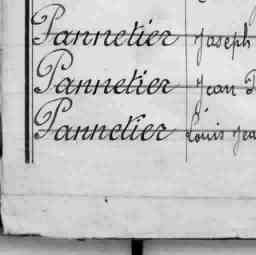 Pannetier Joseph
Pannetier Jean
Pannetier Louis Jea